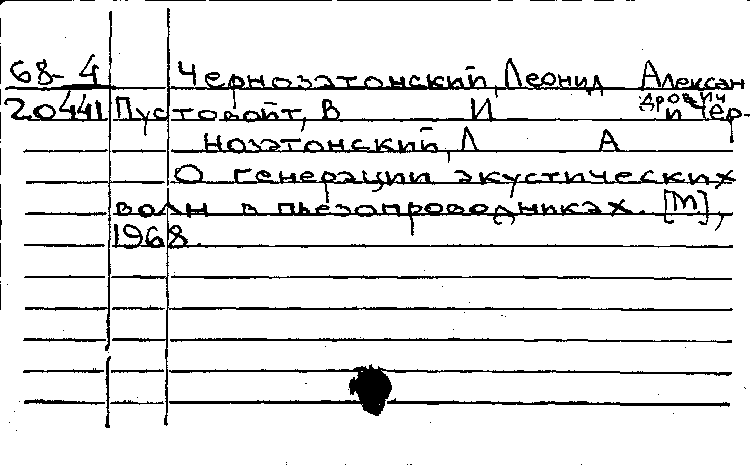 68-4 Чернозатонский, Леонид Александрович
20441 Пустовойт, В И и Чер-
нозатонский, Л А
О генерации акустических
волн в пьезопроводниках. [М],
1968.